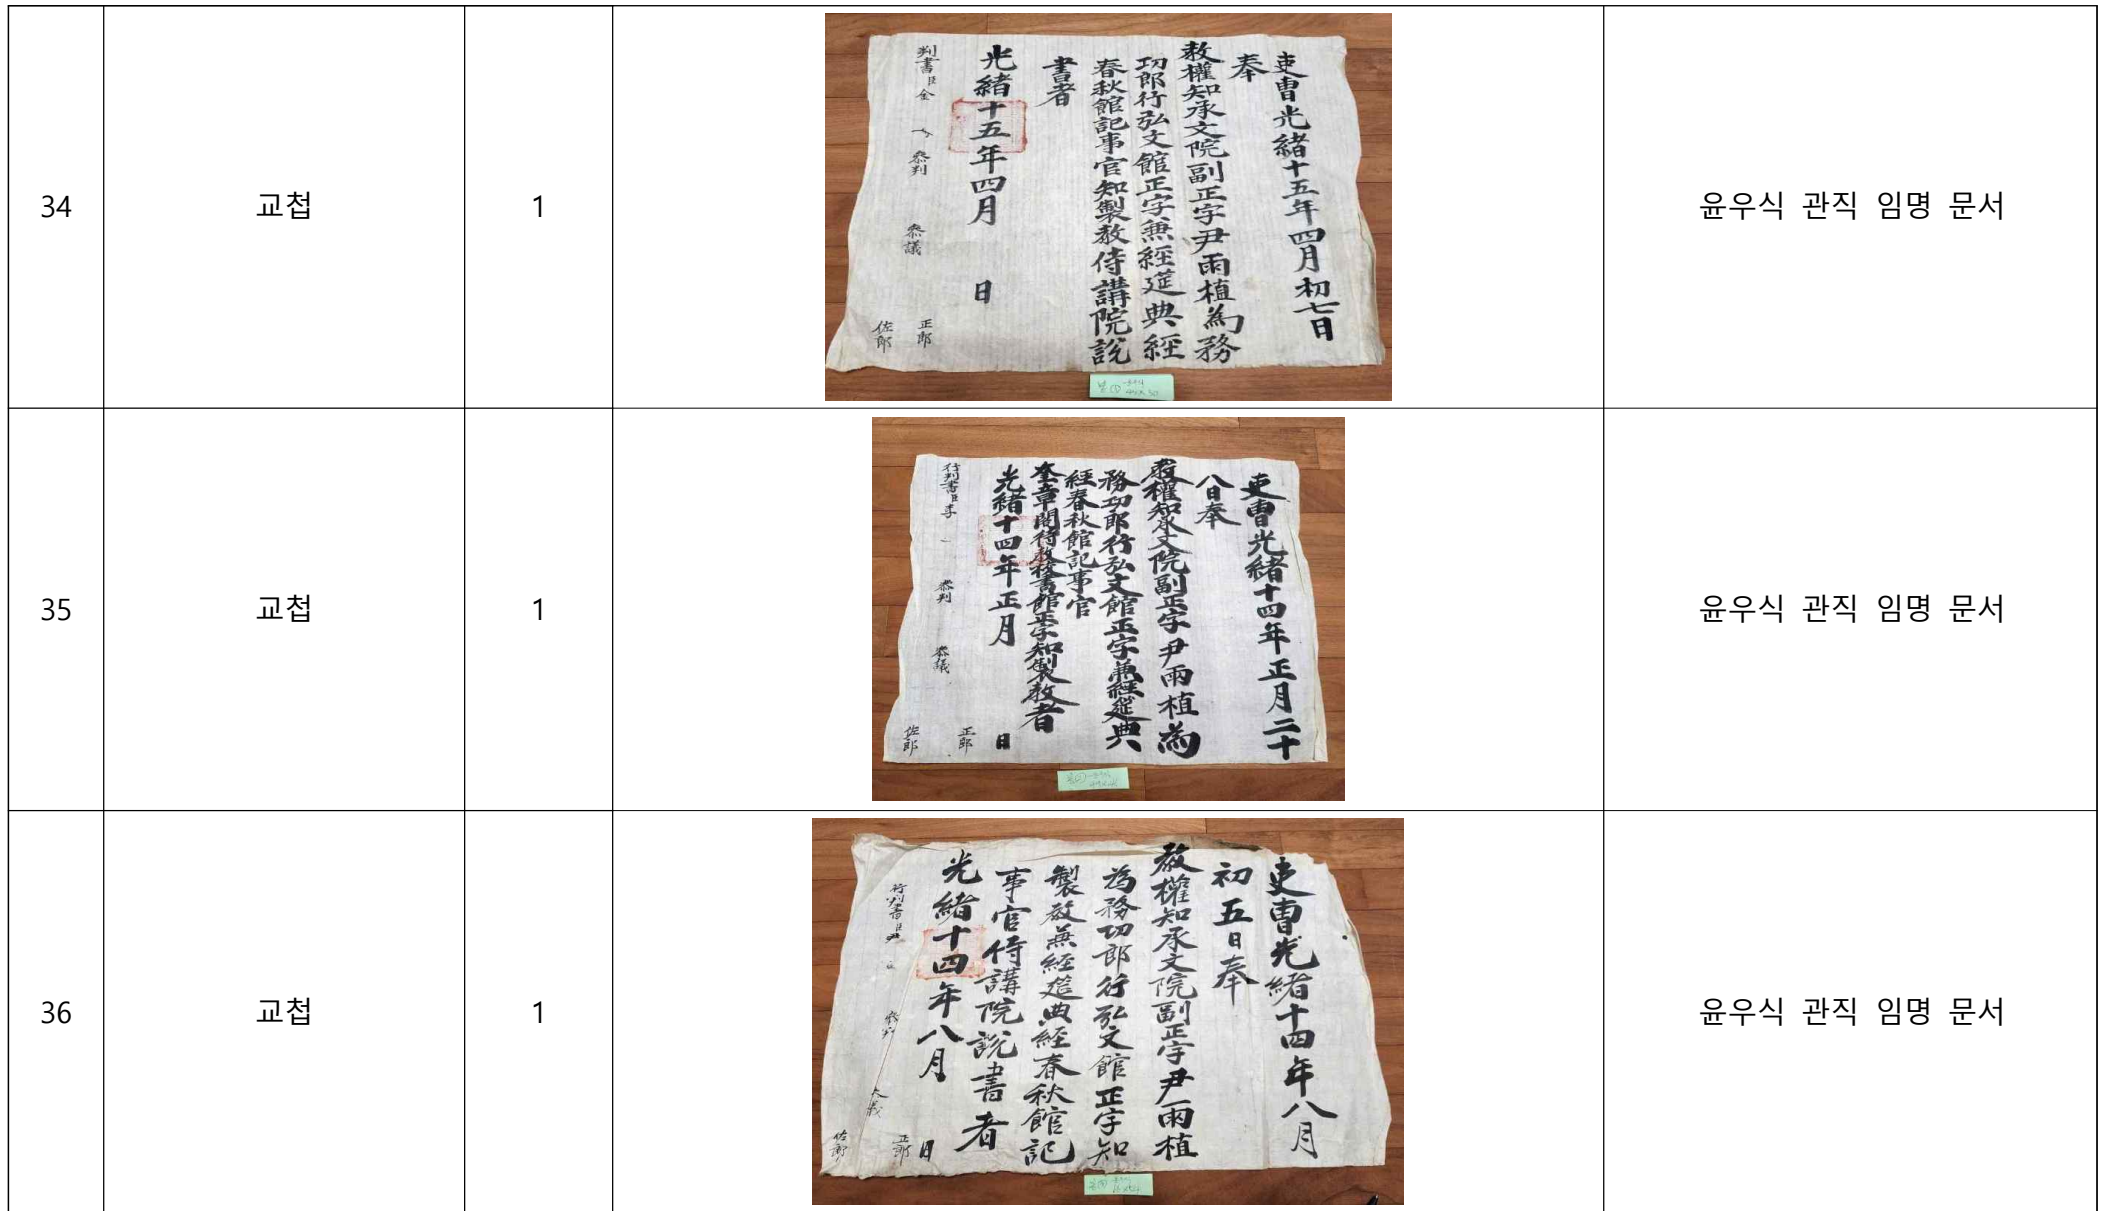 34
교첩
1
吏曹光緖十五年四月初七日
奉
敎權知承文院副正字尹雨植爲務
功郎行弘文館正字兼經筵典經
春秋館記事官知製敎侍講院說
書者
光緖十五年四月 日
判書臣金 參判 參議 正郎
佐郎
윤우식 관직 임명 문서
35
교첩
1
吏曹光緖十四年正月二十
八日奉
敎權知承文院副正字尹雨植爲
務功郎行弘文館正字兼經筵典
經春秋館記事官
奎章閣待敎校書館正字知製敎者
光緖十四年正月 日
行判書臣李 參判 參議 正郎
佐郎
윤우식 관직 임명 문서
36
교첩
1
吏曹光緖十四年八月
初五日奉
敎權知承文院副正字尹雨植
爲務功郎行弘文館正字知
製敎兼經筵典經春秋館記
事官侍講院說書者
光緖十四年八月 日
行判書臣尹 參判 正郎
佐郎
윤우식 관직 임명 문서